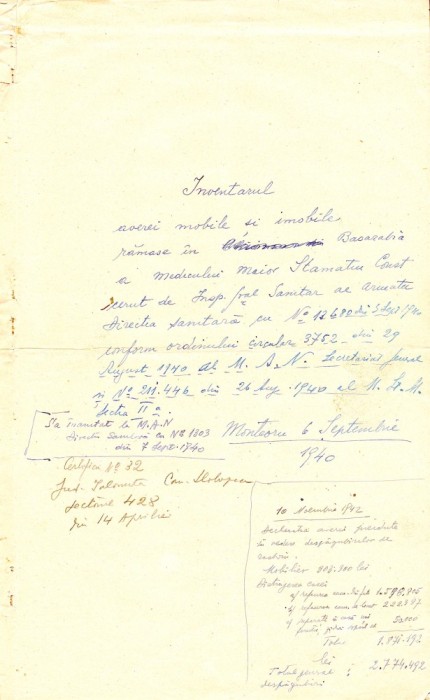 Inventarul
averei mobile si imobile
rămase în Basarabia
a medicului Maior Stamatiu Const
cerut de Insp. gral Sanitar al Armatei
Directia sanitară cu No 12680 din 5 Sept 1940
conform ordinului circular 3752 din 29
August 1940 al M. A. N. Secretariat general
si No 211.446 din 26 Aug. 1940 al M. St. M.
Sectia II a.
S'a înaintat la M.A.N
Directia Sanitară cu No 1803
din 7 Sept. 1940
Monteoru 6 Septembrie
1940
Certificat No 32
Jud. Ialomita Com. Slobozia
sectorul 428
din 14 Aprilie
10 Noembrie 1942
Declaratia averei pierdute
în vederea despăgubirilor de
razboiu.
Mobilier 905.900 lei
Distrugerea casei
a/ repararea
b/ repararea 222.387
c/ 50.000
Total 1.871.192
lei
Total general : 2.774.492
despăgubiri